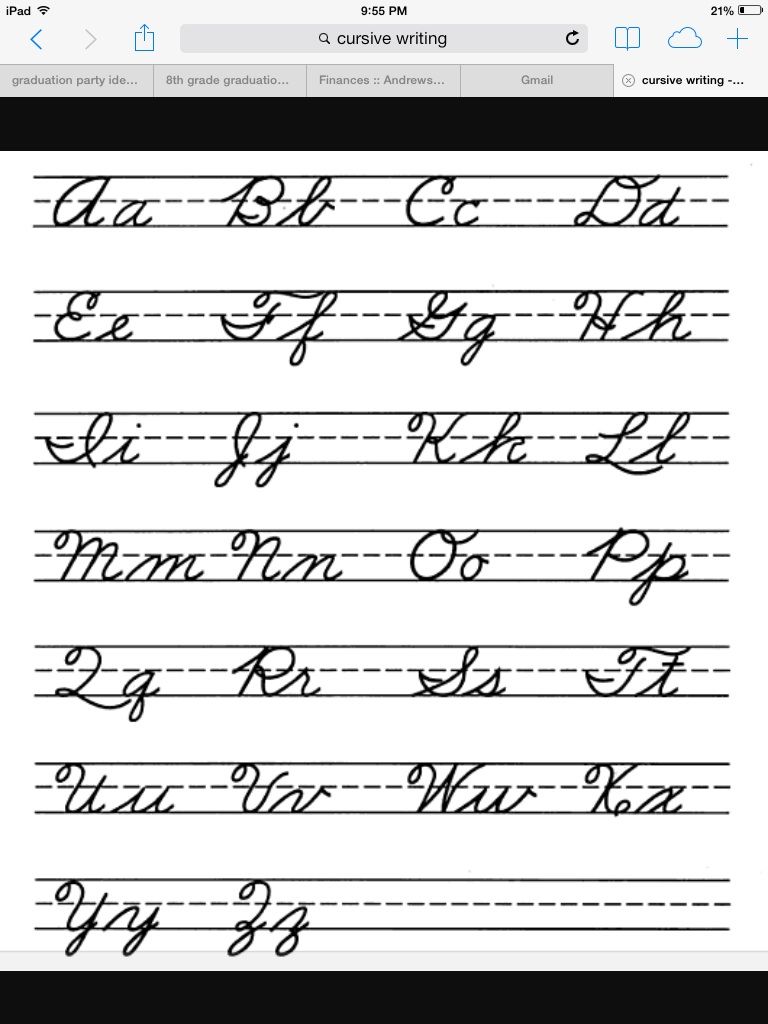 iPad 9:55 PM 21%
cursive writing
graduation party ide... 8th grade graduatio... Finances :: Andrews... Gmail cursive writing -...
Aa Bb Cc Dd
Ee Ff Gg Hh
Ii Jj Kk Ll
Mm Nn Oo Pp
Qq Rr Ss Tt
Uu Vv Ww Xx
Yy Zz